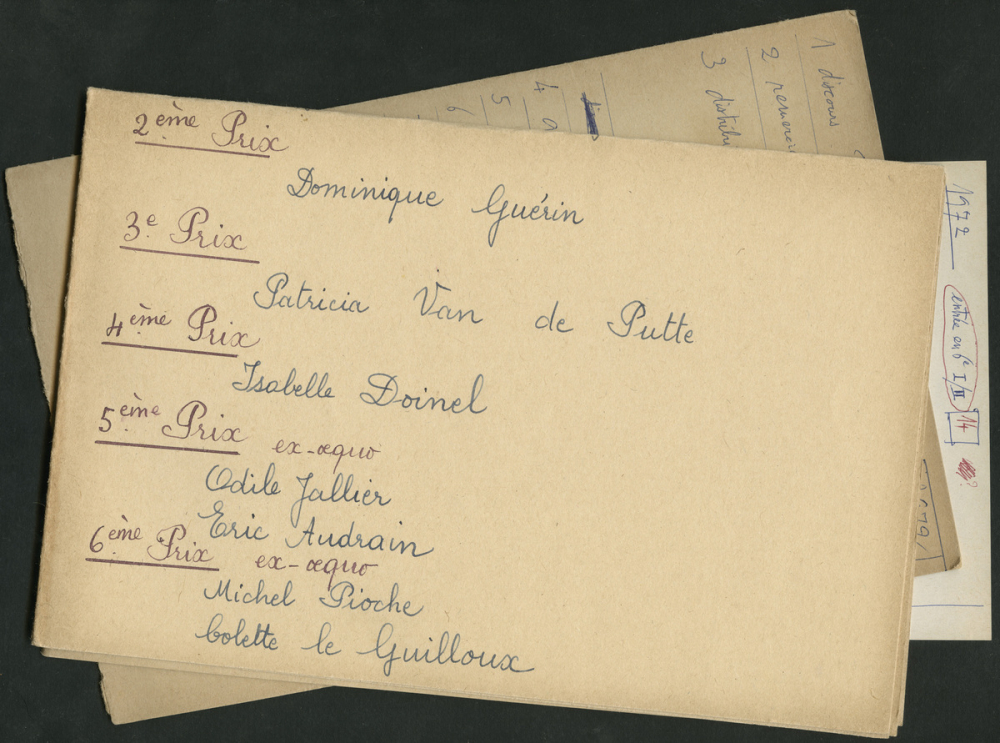 2ème Prix
Dominique Guérin
3e Prix
Patricia Van de Putte
4ème Prix
Isabelle Doinel
5ème Prix ex-æquo
Odile Jallier
Eric Audrain
6ème Prix ex-æquo
Michel Pioche
Colette le Guilloux
1 discours
2 remerci
3 distribu
4
5
6
1972
entrée en 6e I/II 14